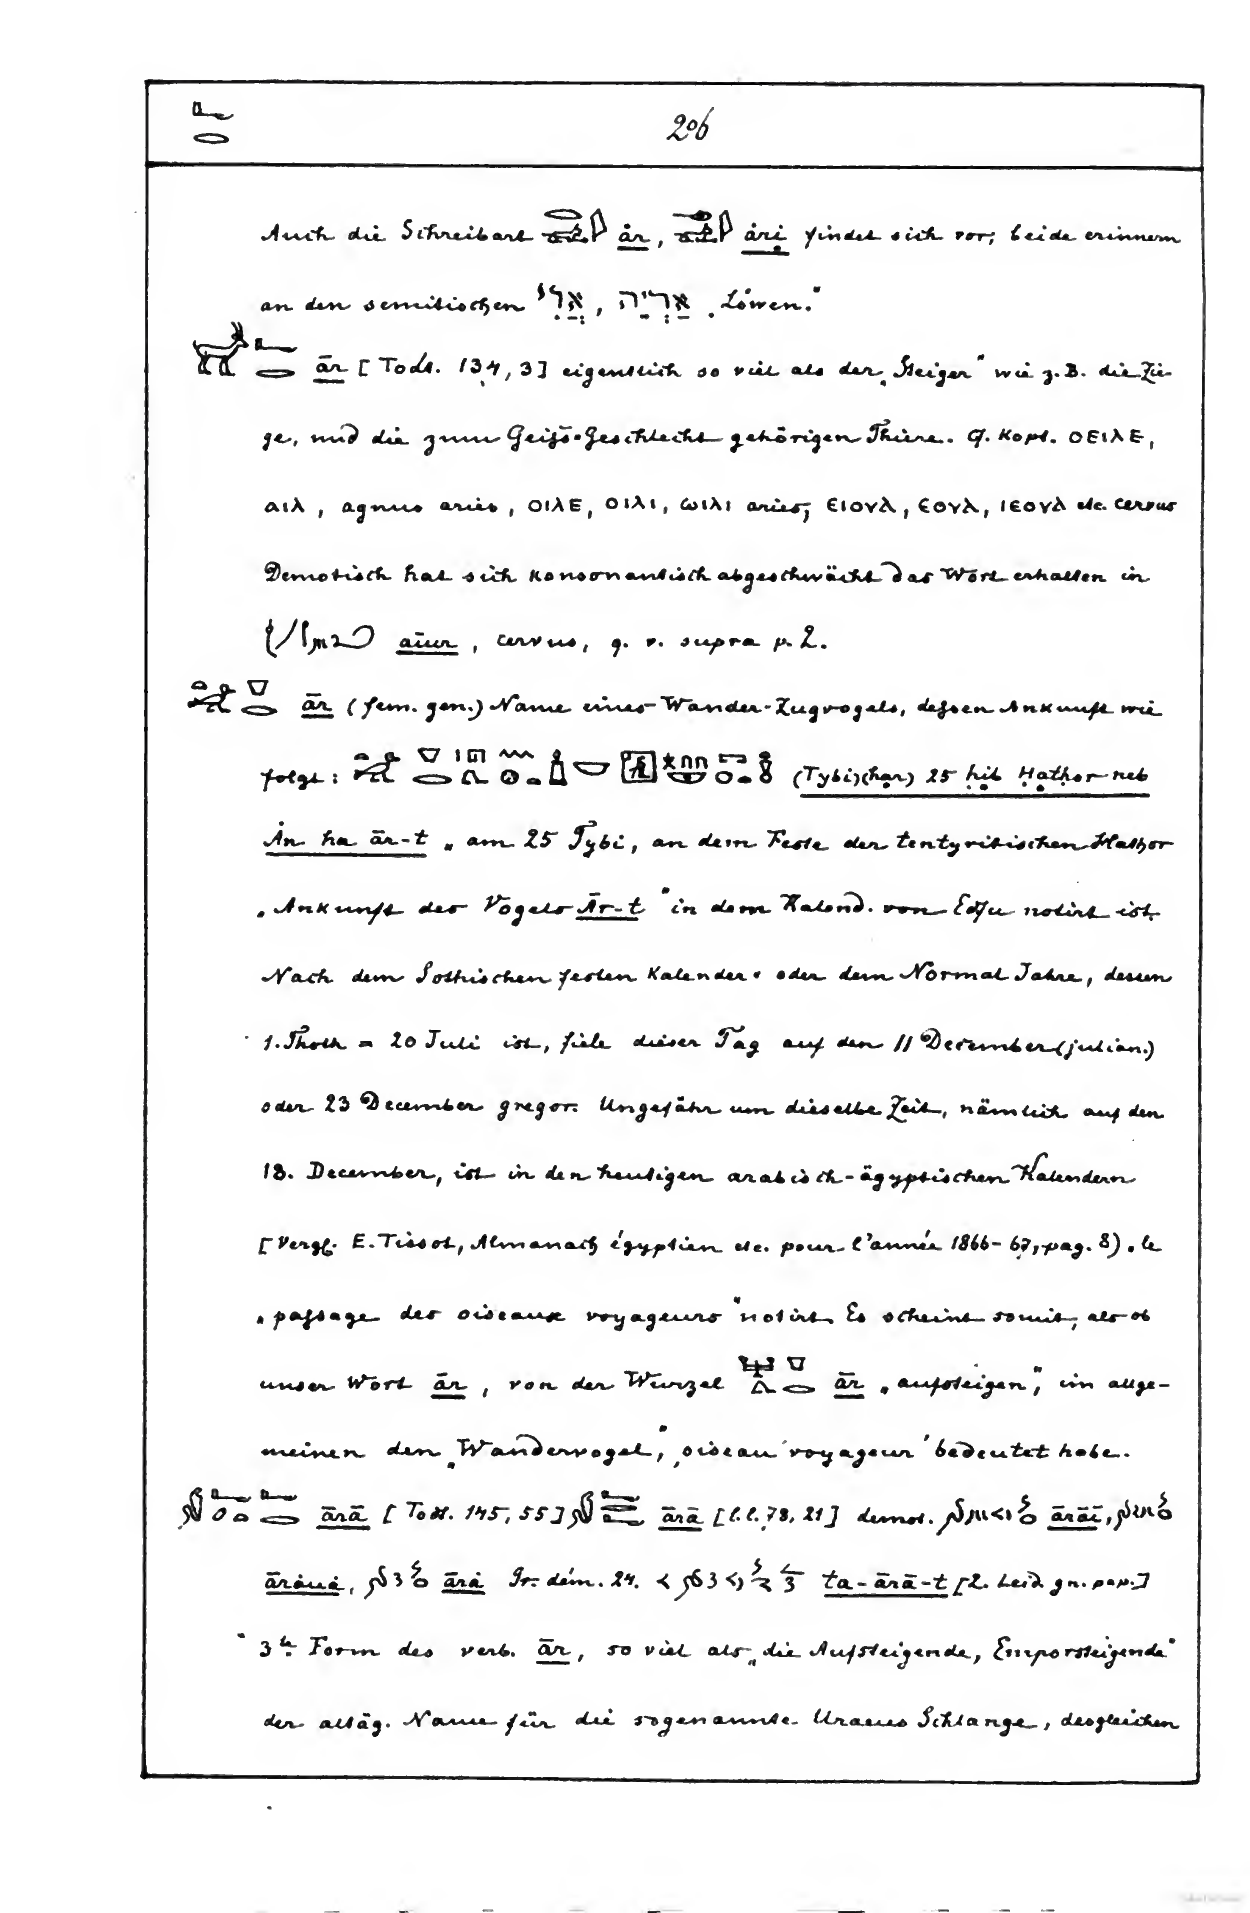 206
Auch die Schreibart ȧr, ȧri findet sich vor; beide erinnern
an den semitischen אֲרִי, אַרְיֵה „Löwen.“
ār [Todt. 134, 3] eigentlich so viel als der „Steiger“ wie z.B. die Zie-
ge, und die zum Geiß-Geschlecht gehörigen Thiere. Cf. Kopt. ⲟⲉⲓⲗⲉ,
ⲁⲓⲗ, agnus aries, ⲟⲓⲗⲉ, ⲟⲓⲗⲓ, ⲱⲓⲗⲓ aries; ⲉⲓⲟⲩⲗ, ⲉⲟⲩⲗ, ⲓⲉⲟⲩⲗ etc. cervus
Demotisch hat sich konsonantisch abgeschwächt das Wort erhalten in
aīur, cervus, q. v. supra p. 2.
ār (fem. gen.) Name eines Wander-Zugvogels, deßen Ankunft wie
folgt: (Tybi)(ḥar) 25 ḥib Ḥatḥor neb
Ȧn ha ār-t „am 25 Tybi, an dem Feste der tentyritischen Hathor
„Ankunft des Vogels Ār-t“ in dem Kalend. von Edfu notirt ist.
Nach dem Sothischen festen Kalender oder dem Normal Jahre, dessen
1. Thoth = 20 Juli ist, fiele dieser Tag auf den 11 December (julian.)
oder 23 December gregor. Ungefähr um dieselbe Zeit, nämlich auf den
18. December, ist in den heutigen arabisch-ägyptischen Kalendern
[Vergl. E. Tissot, Almanach égyptien etc. pour l'année 1866-67, pag. 8) „le
„paßage des oiseaux voyageurs“ notirt. Es scheint somit, als ob
unser Wort ār, von der Wurzel ār „aufsteigen“, im allge-
meinen den „Wandervogel“, „oiseau voyageur“ bedeutet habe.
ārā [Todt. 145, 55] ārā [l.l. 78, 21] demot. ārāī,
ārȧuȧ, ārȧ Gr. dém. 24. ta-ārā-t [2. Leid. gn. pap.]
3te Form des verb. ār, so viel als „die Aufsteigende, Emporsteigende“
der altäg. Name für die sogenannte Uraeus Schlange, desgleichen